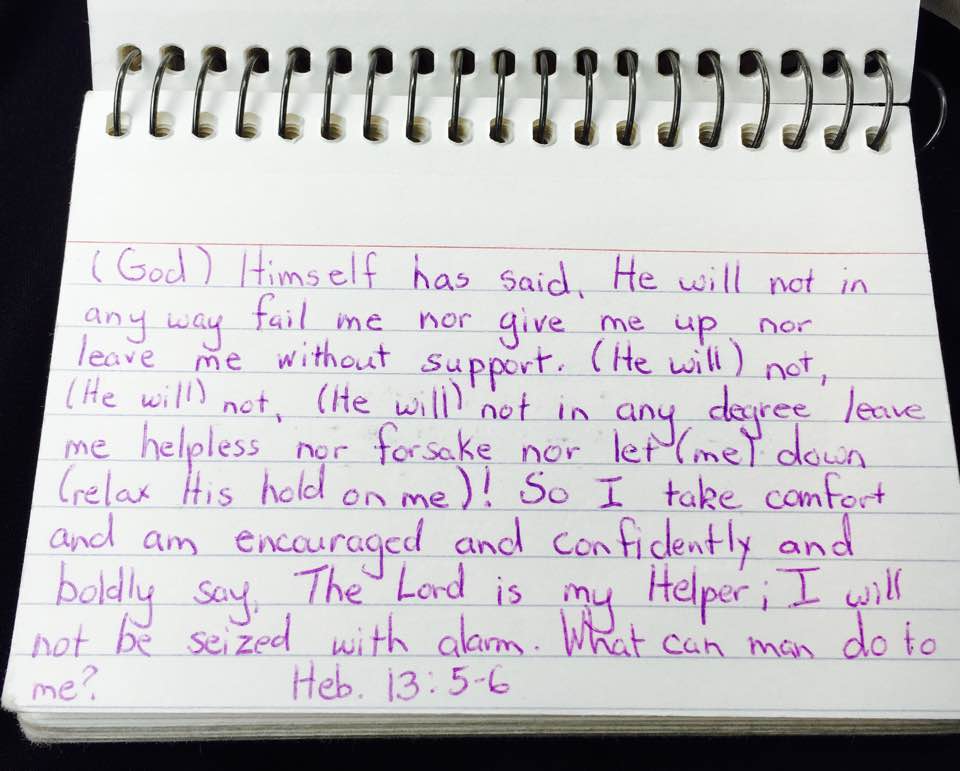 (God) Himself has said, He will not in
any way fail me nor give me up nor
leave me without support. (He will) not,
(He will) not, (He will) not in any degree leave
me helpless nor forsake nor let (me) down
(relax His hold on me)! So I take comfort
and am encouraged and confidently and
boldly say, The Lord is my Helper; I will
not be seized with alarm. What can man do to
me? Heb. 13:5-6